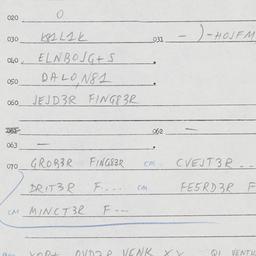 020 0
030 K81L1K 031 - )-HOJFM
040 ELNBOJG+S
050 DALO,N81
060 JEJD3R FINGS3R
062 -
063 -
070 GROB3R FINGS3R CM CVEJT3R ..
DRIT3R F.... CM FE5RD3R F
CM MINCT3R F--
VENK XX QL VENTU